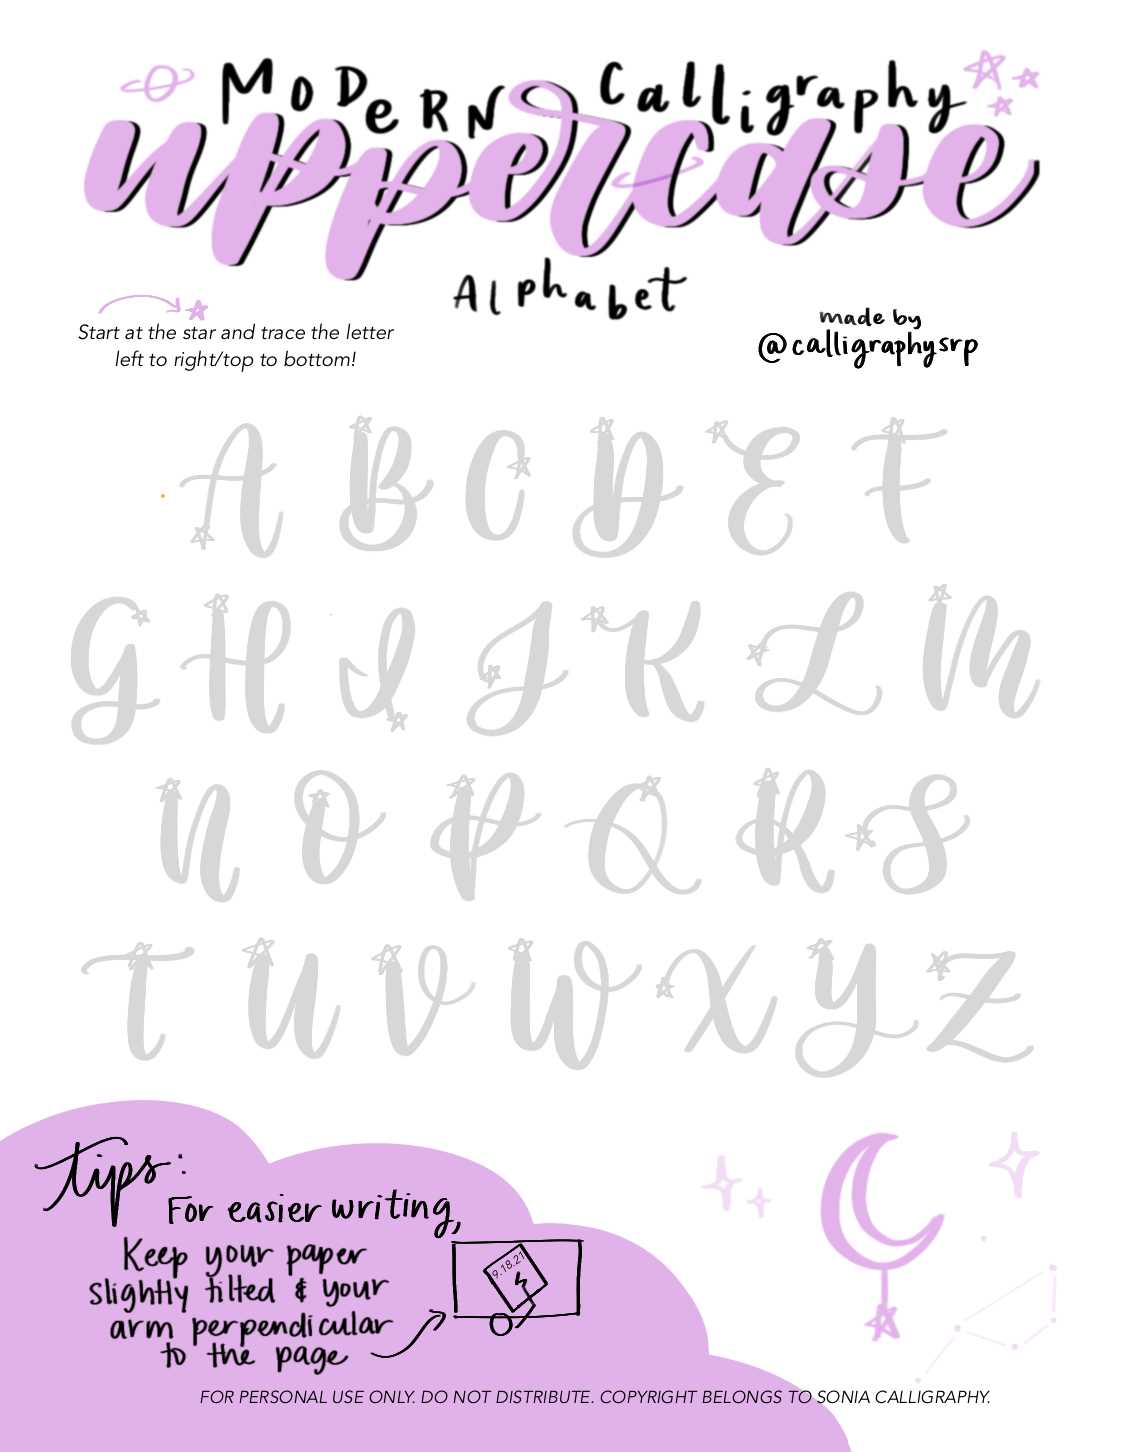 MODERN Calligraphy
uppercase
Alphabet
Start at the star and trace the letter
left to right/top to bottom!
made by
@calligraphysrp
A B C D E F
G H I J K L M
N O P Q R S
T U V W X Y Z
tips:
For easier writing,
Keep your paper
slightly tilted & your
arm perpendicular
to the page
9.18.21
FOR PERSONAL USE ONLY. DO NOT DISTRIBUTE. COPYRIGHT BELONGS TO SONIA CALLIGRAPHY.